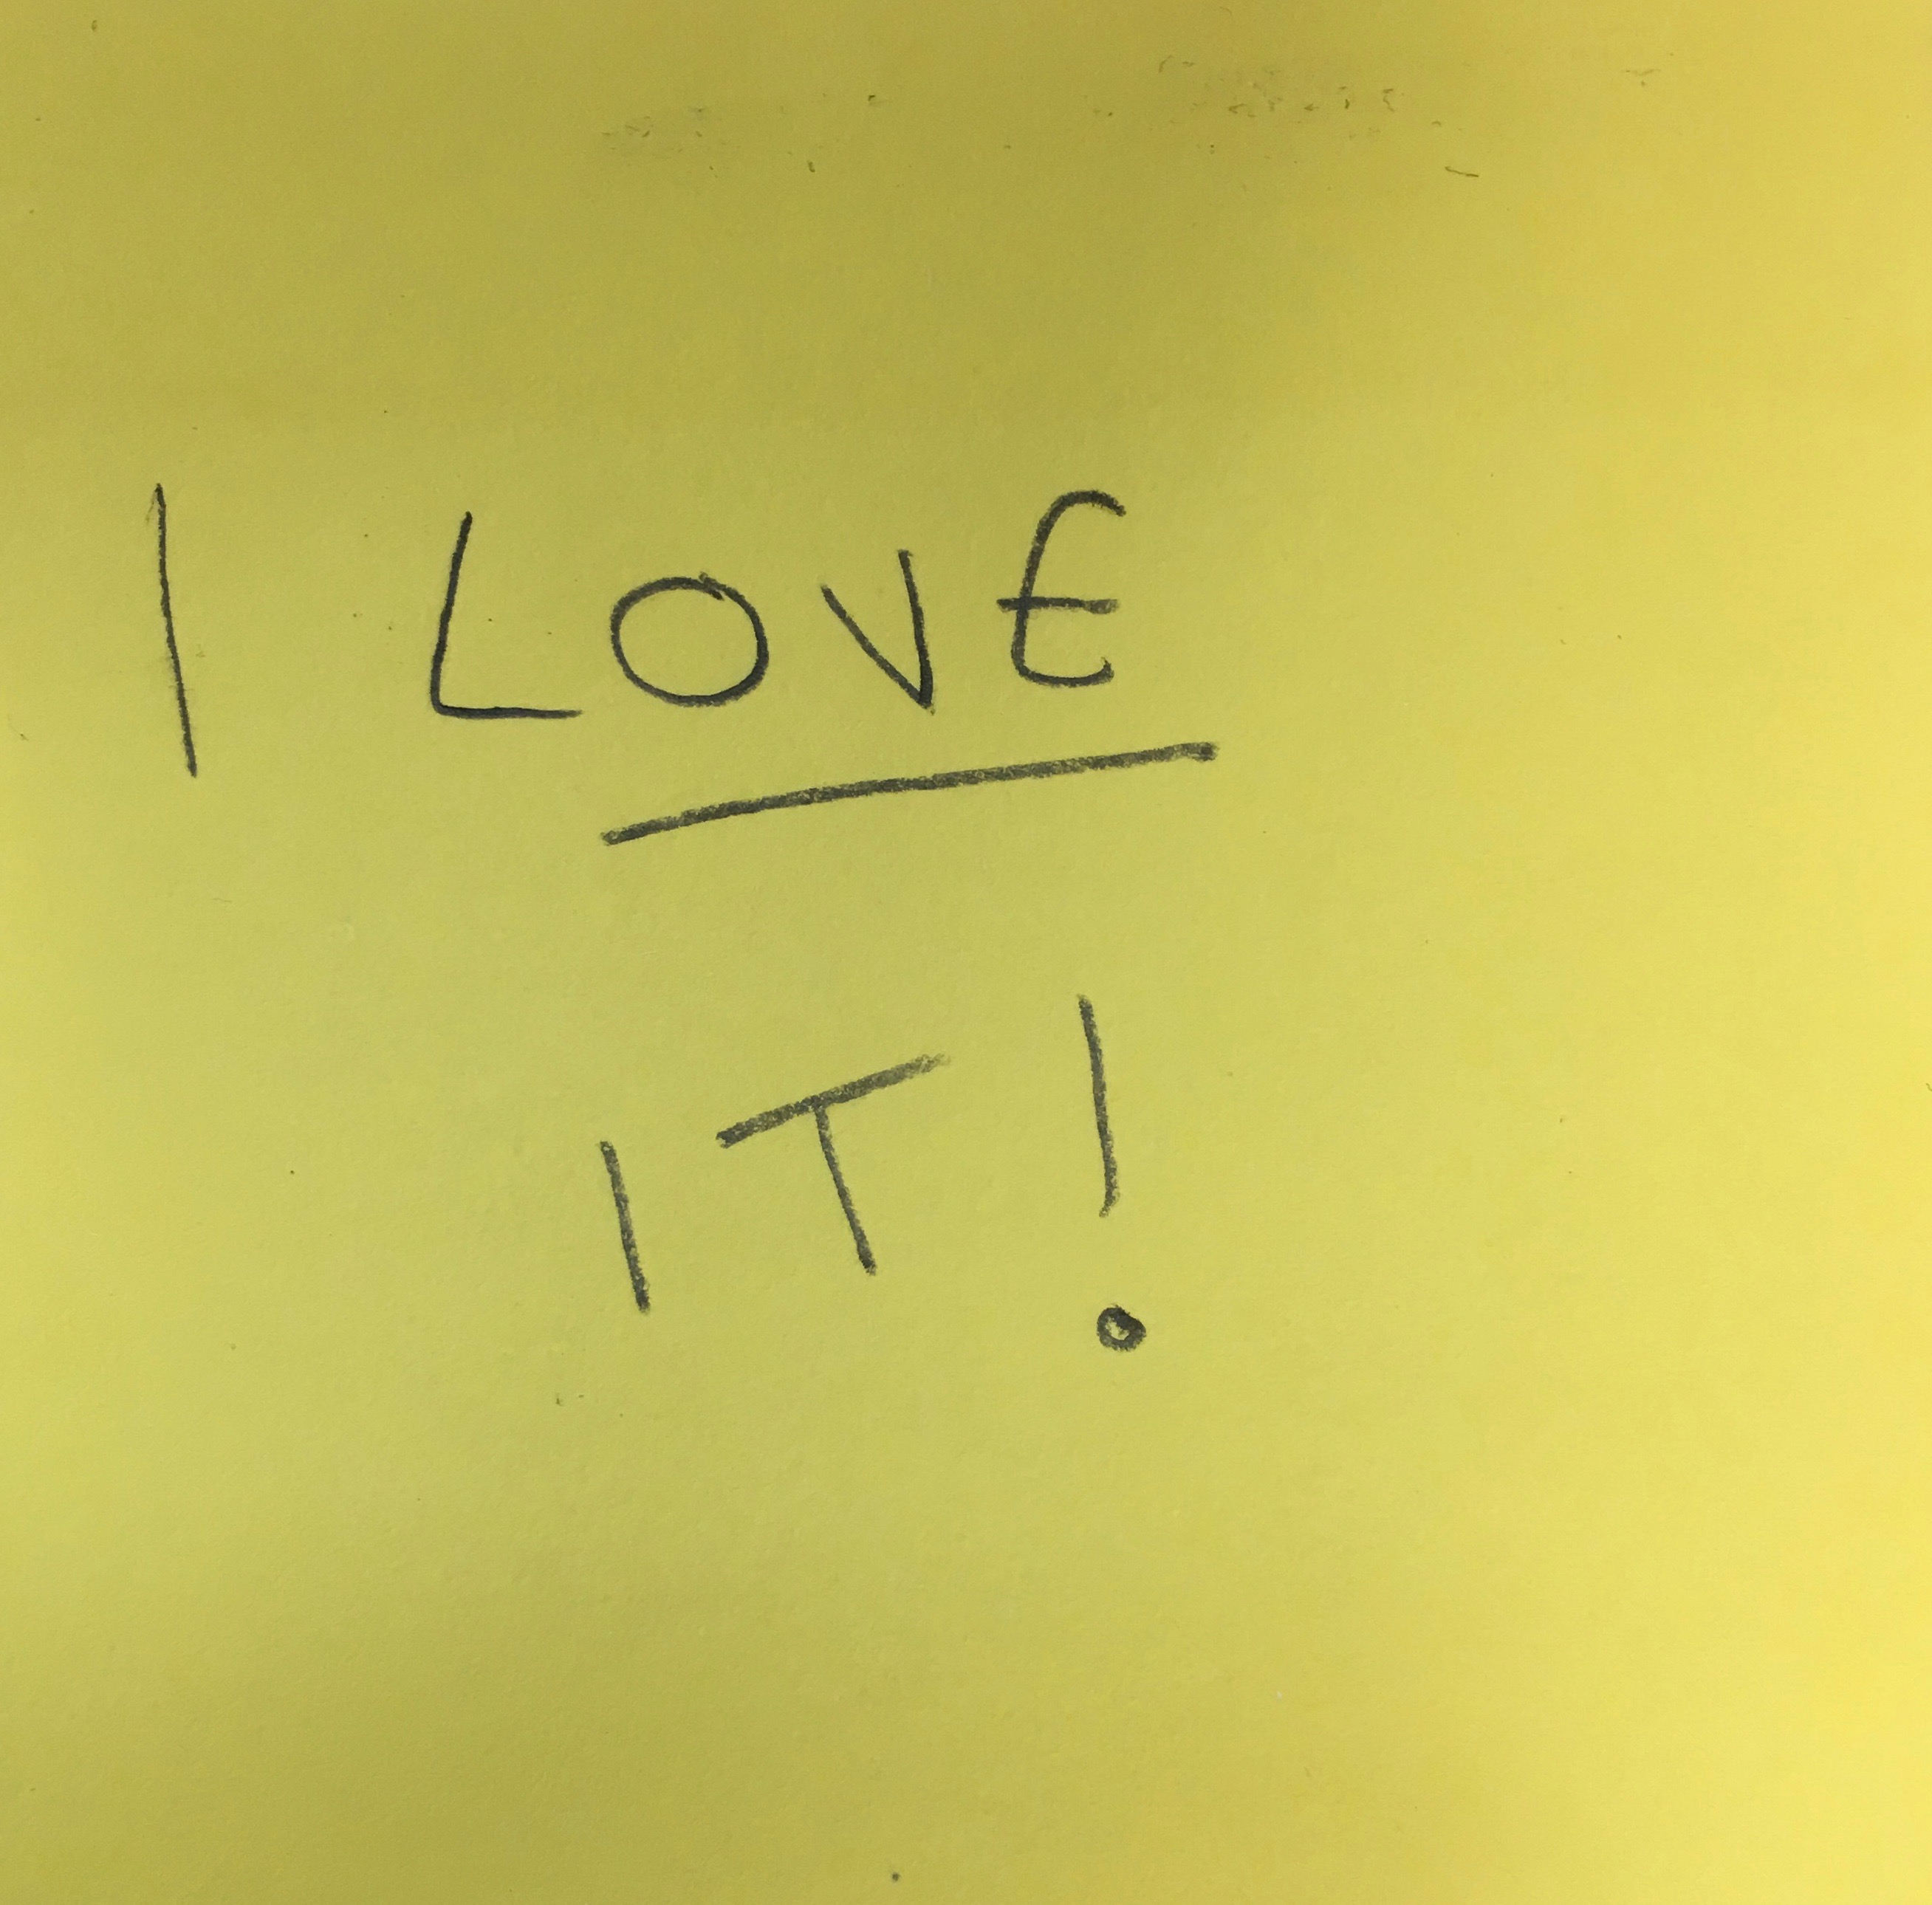 I LOVE
IT!